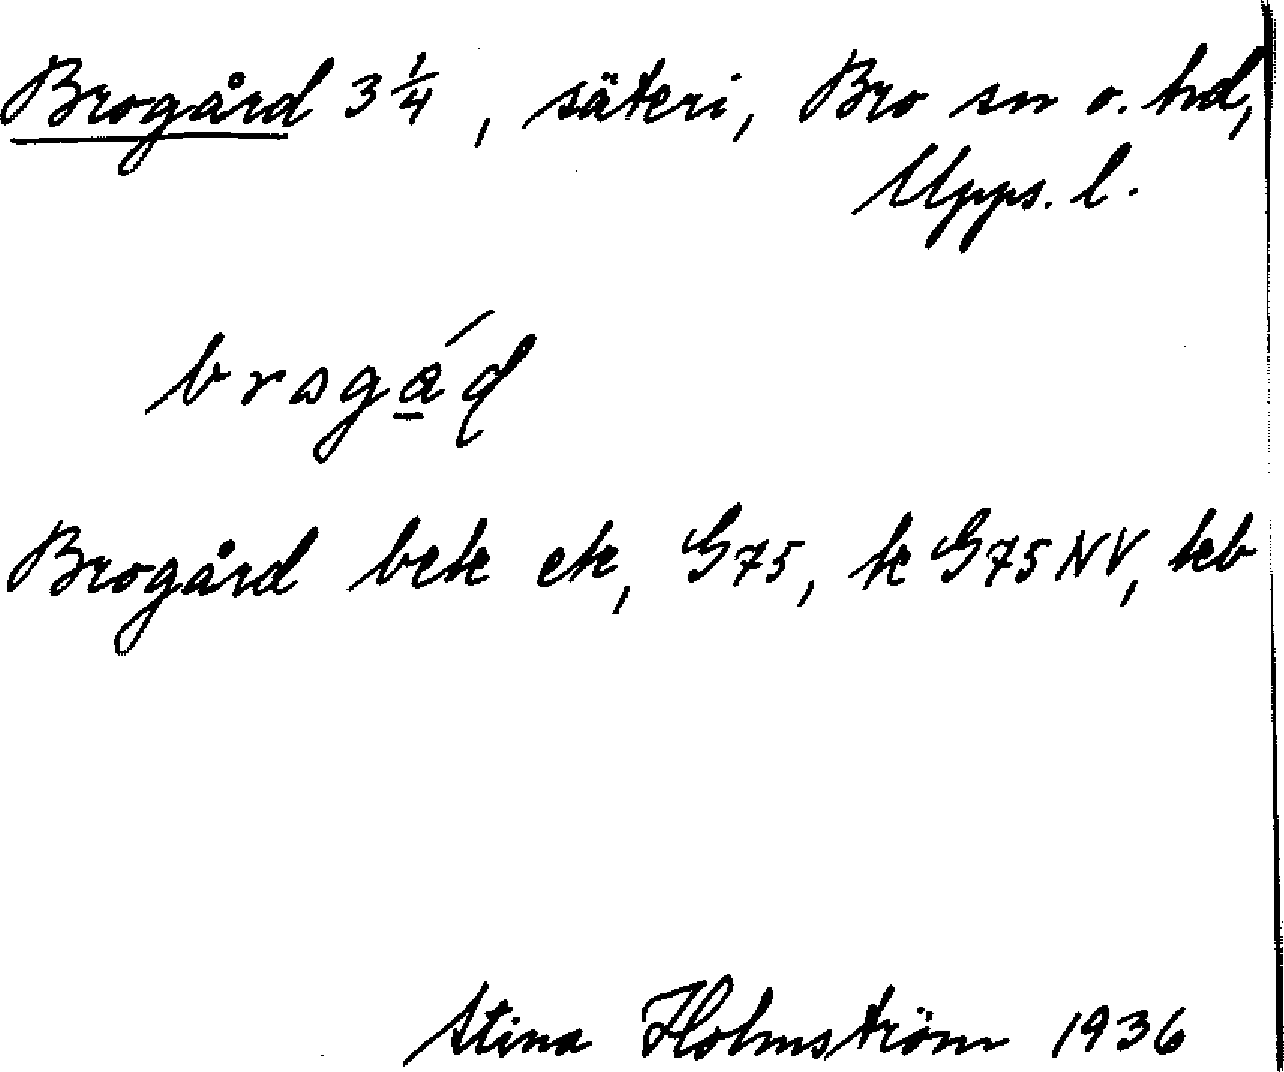 Brogård 3 1/4, säteri, Bro sn o. hd,
Upps. l.
Brogård bek ek, G75, k G75NV, kb
Stina Holmström 1936